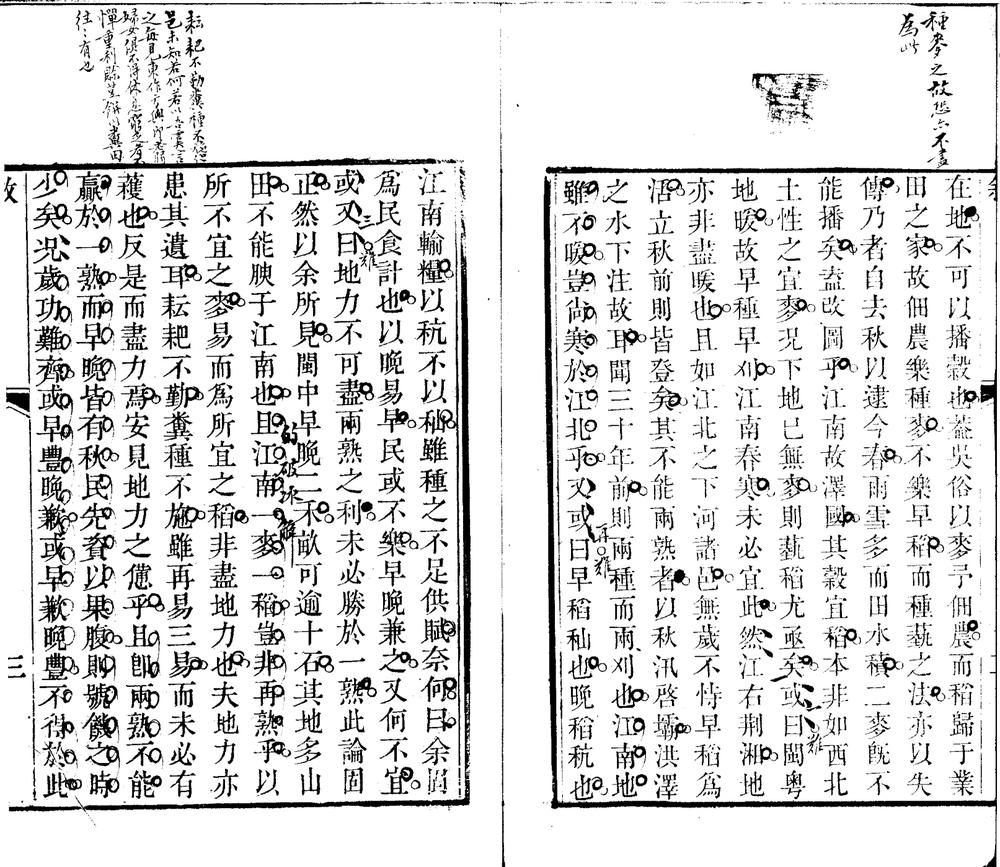 種麥之故恐亦不盡
為此
在地不可以播穀也葢吳俗以麥予佃農而稻歸于業
田之家故佃農樂種麥不樂早稻而種蓺之法亦以失
傳乃者自去秋以逮今春雨雪多而田水積二麥旣不
能播矣盍改圖乎江南故澤國其穀宜稻本非如西北
土性之宜麥况下地已無麥則蓺稻尤亟矣或曰閩粤
地暖故早種早刈江南春寒未必宜此然江右荆湘地
亦非盡暖也且如江北之下河諸邑無歲不恃早稻爲
活立秋前則皆登矣其不能兩熟者以秋汛啓壩洪澤
之水下注故耳聞三十年前則兩種而兩刈也江南地
雖不暖豈尚寒於江北乎又或曰早稻秈也晚稻秔也
江南輸糧以秔不以秈雖種之不足供賦奈何曰余固
爲民食計也以晚易早民或不樂早晚兼之又何不宜
或又曰地力不可盡兩熟之利未必勝於一熟此論固
正然以余所見閩中早晚二禾畝可逾十石其地多山
田不能腴于江南也且江南一麥一稻豈非再熟乎以
所不宜之麥易而爲所宜之稻非盡地力也夫地力亦
患其遺耳耘耙不勤糞種不施雖再易三易而未必有
穫也反是而盡力焉安見地力之憊乎且卽兩熟不能
贏於一熟而早晚皆有秋民先資以果腹則號饑之時
少矣况歲功難齊或早豐晚歉或早歉晚豐不得於此
二難
再難
三難
的破冰解
耘耙不勤糞種不施
往往有也
三